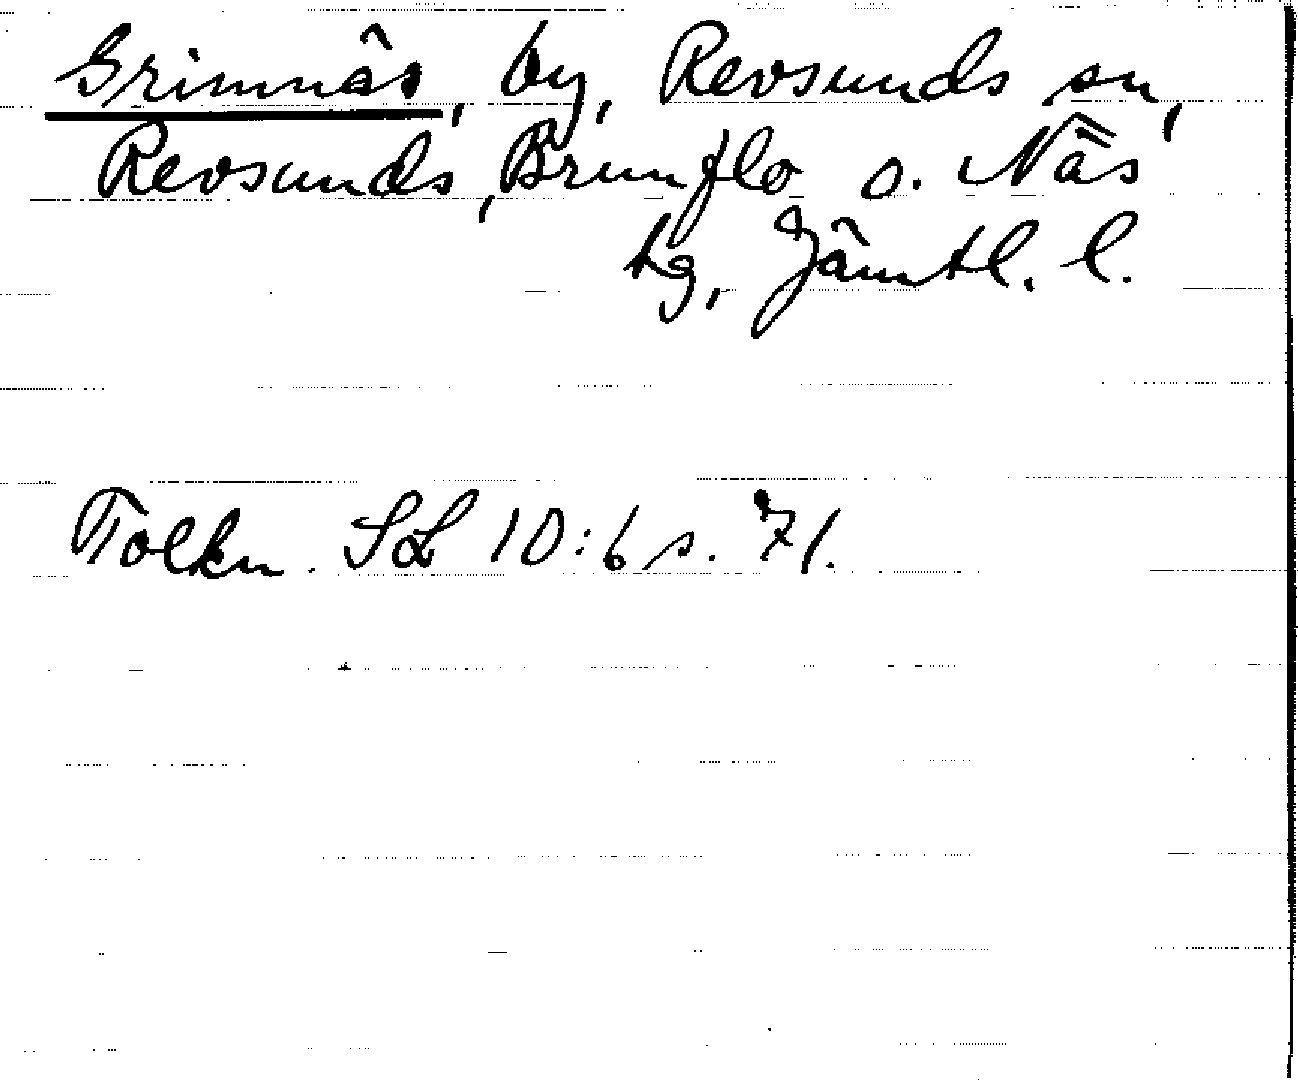 Grimnäs, by, Revsunds sn,
Revsunds, Brunflo o. Näs
tg, Jämtl. l.
Tolkn. SL 10:6 s. 71.